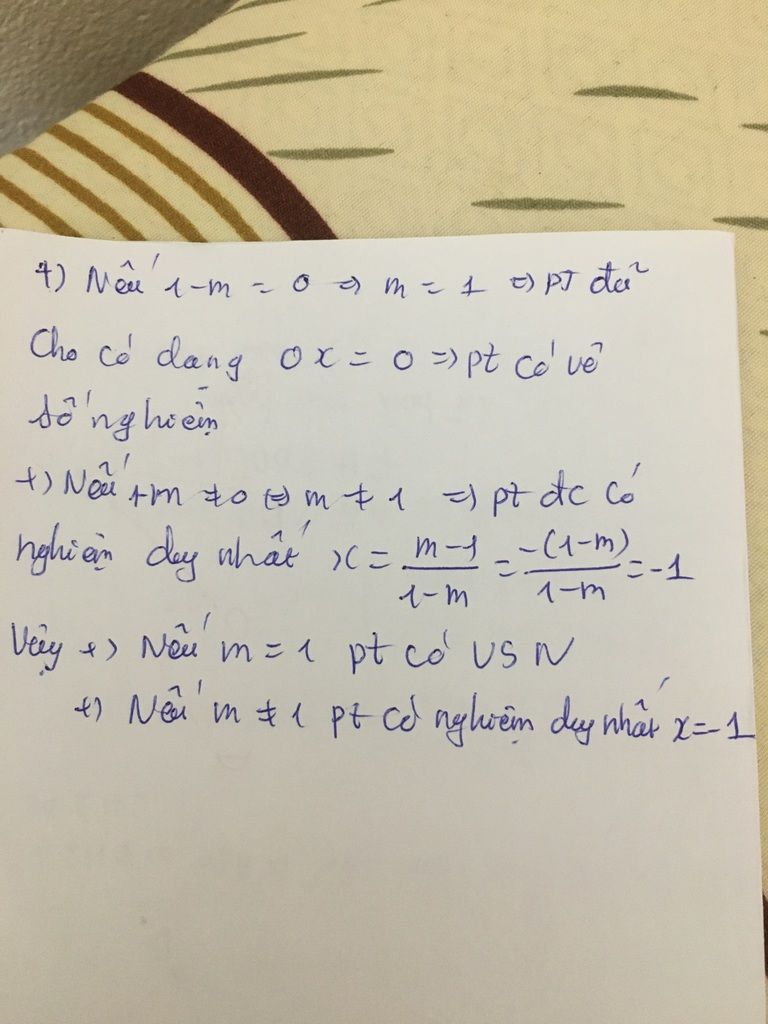 +) Nếu 1-m = 0 => m = 1 => PT đã
Cho có dang 0x = 0 => pt có vô
số nghiệm
+) Nếu 1-m ≠ 0 <=> m ≠ 1 => pt đc có
nghiệm duy nhất x = \frac{m-1}{1-m} = \frac{-(1-m)}{1-m} = -1
Vậy +) Nếu m = 1 pt có VSN
+) Nếu m ≠ 1 pt có nghiệm duy nhất x=-1